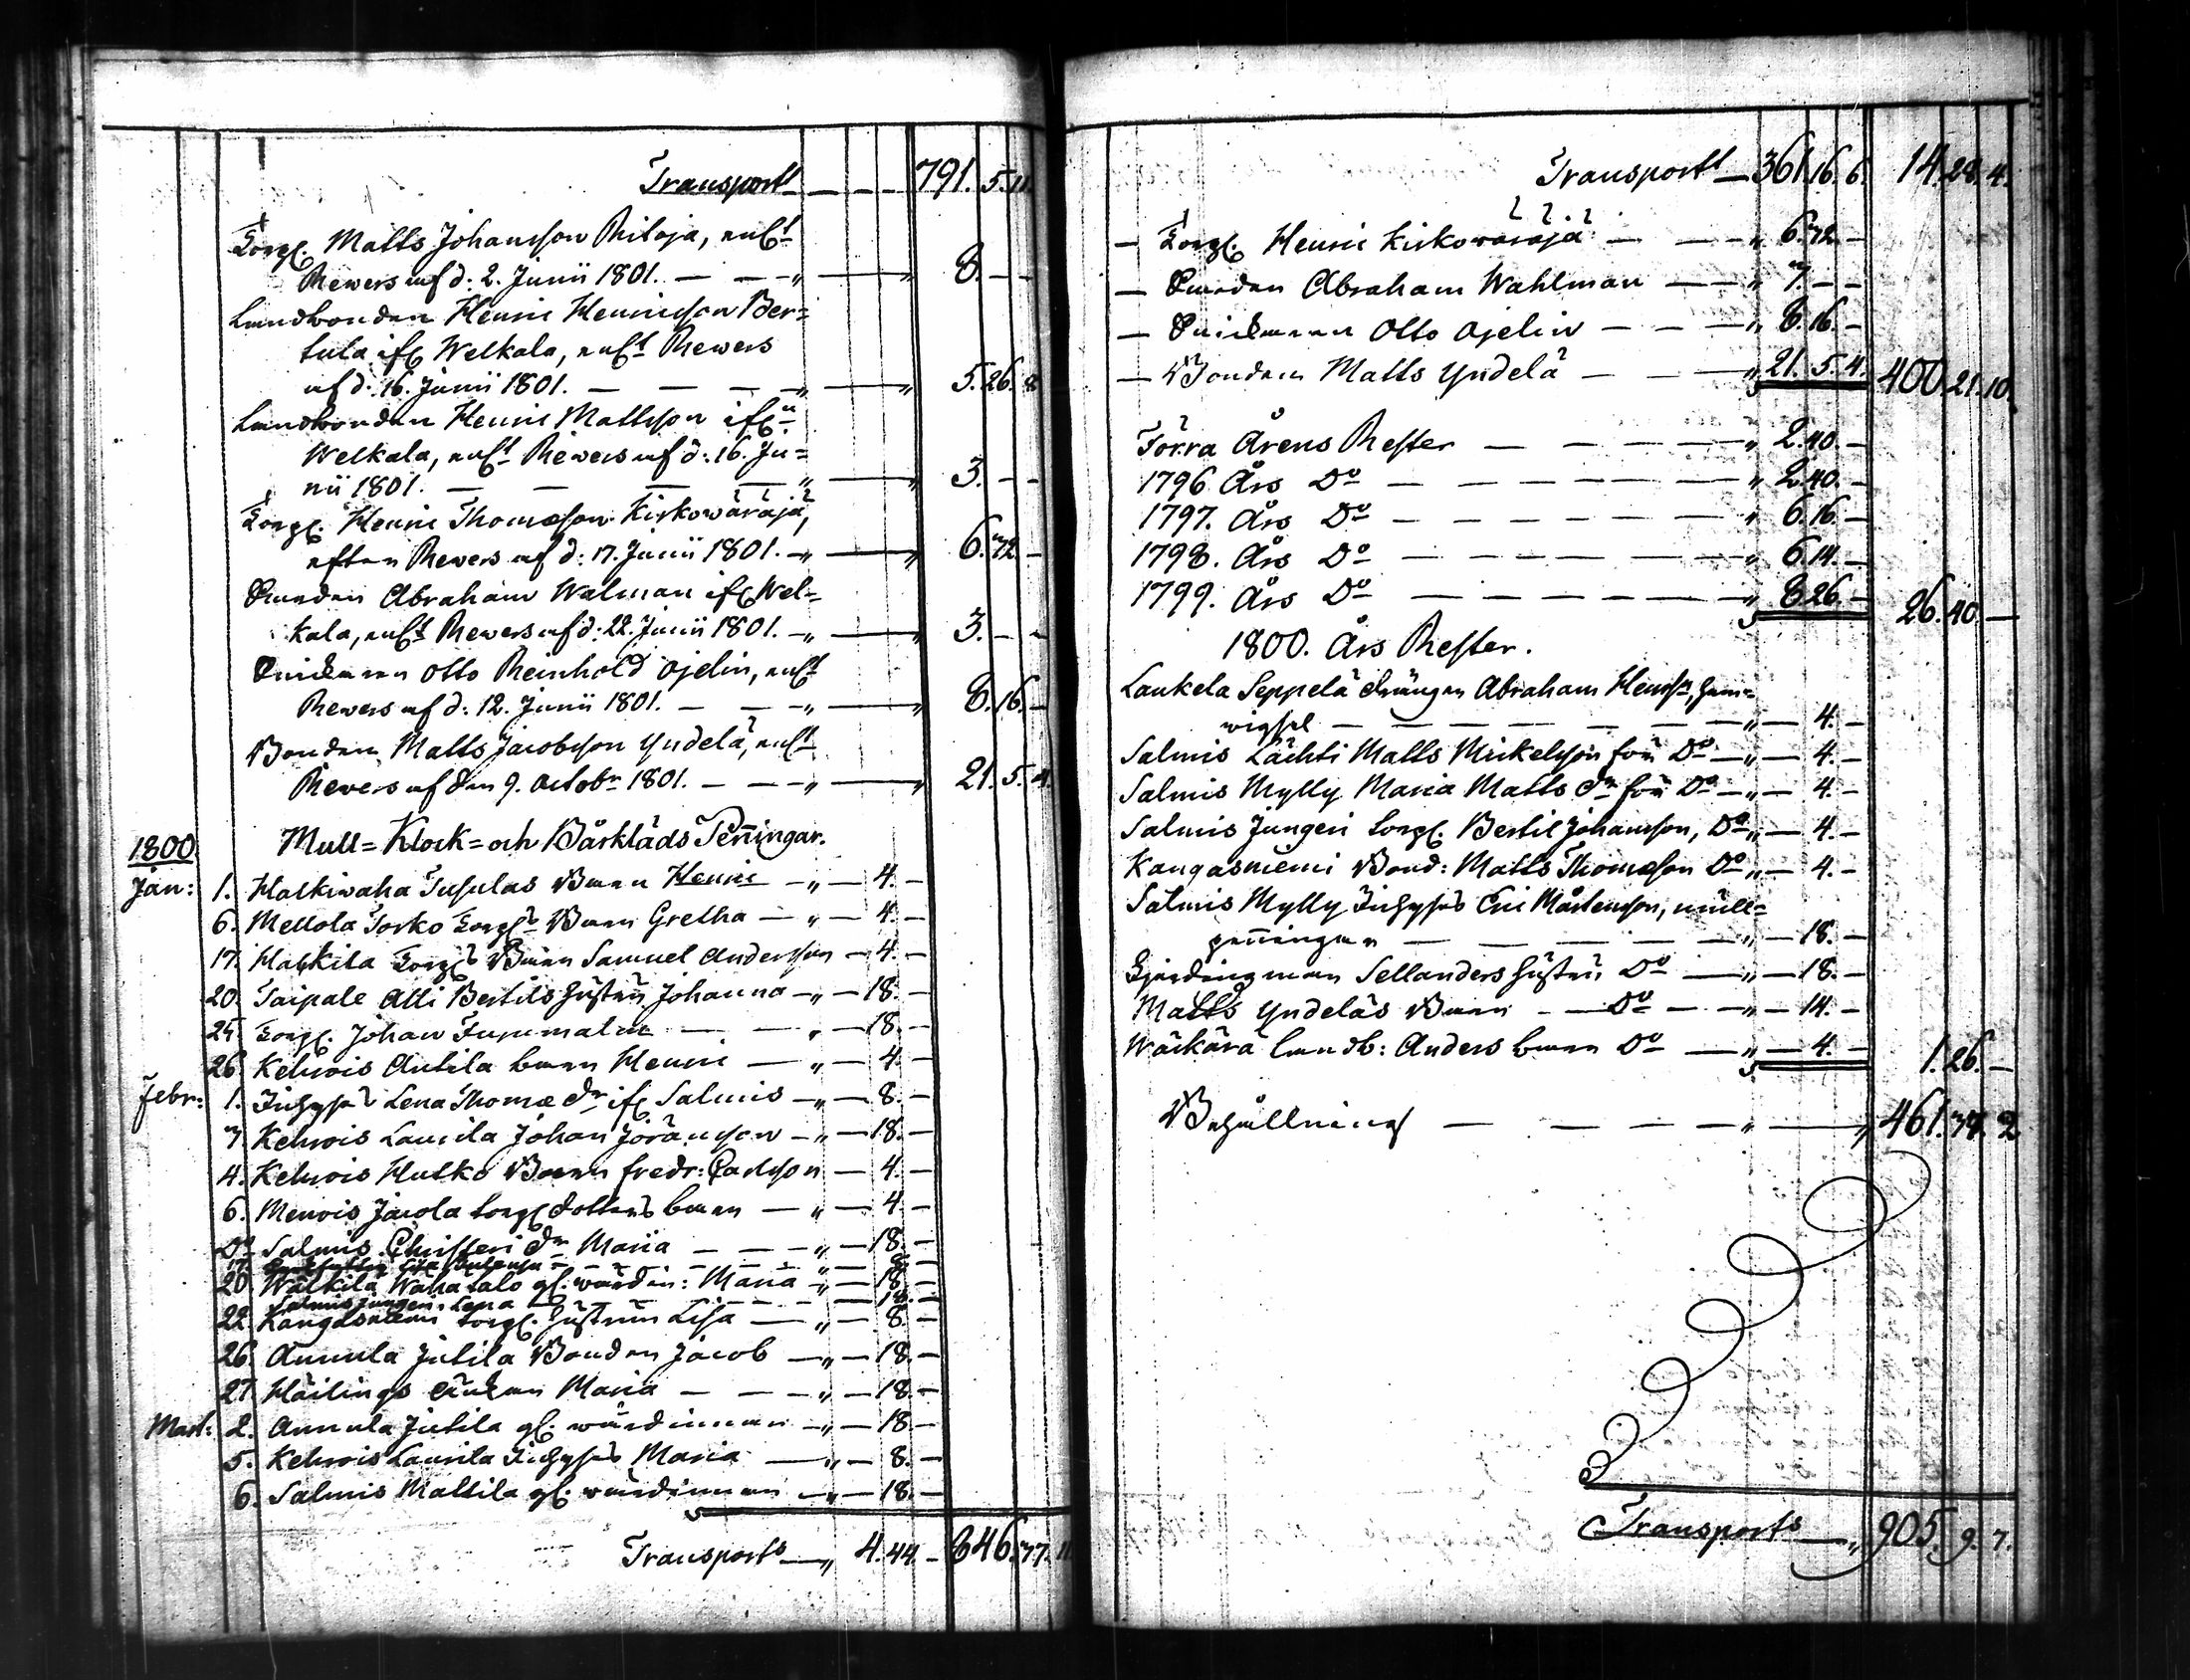 Transport — — — 791. 5. 11.
Torp. Matts Johansson Ritoja, enl.t
Revers af d: 2. Junii 1801. — — „ — „ 8. — —
Landbonden Henric Henricsson Ber=
tula ifr. Welkala, enl.t Revers
af d: 16. Junii 1801. — — — „ — „ 5. 26. 8
Landbonden Henric Mattsson ifr.n
Welkala, enl.t Revers af d: 16. Ju=
nii 1801. — — — — „ — „ 3. — —
Torp. Henric Thomæson Kirkowäräjä,
efter Revers af d: 17. Junii 1801. — „ — „ 6. 72. —
Smeden Abraham Walman ifr. Wel=
kala, enl.t Revers af d: 22. Junii 1801. — „ — „ 3. — —
Snickaren Otto Reinhold Ojelin, enl.t
Revers af d: 12. Junii 1801. — — „ — „ 8. 16. —
Bonden Matts Jacobsson Yndelä, enl.t
Revers af den 9. Octobr 1801. — — „ — „ 21. 5. 4.
1800. Mull= Klock= och Bårkläds Peñingar.
Jan: 1. Haskiwaha Tupulas Barn Henric — „ — 4. —
6. Mellola Torko Torps Barn Gretha — „ — 4. —
17. Haskila Torps Barn Samuel Andersson — 4. —
20. Taipale Alli Bertils hustru Johanna — „ — 18. —
24. Torp. Johan Tummatus — — „ — 18. —
26. Kelwois Antila barn Henric — „ — 4. —
Febr: 1. Inhyses Lena Thomæ dr ifr. Salmis — „ — 8. —
7. Kelwois Laurila Johan Jöransson — „ — 18. —
4. Kelwois Hutko Barn Fredr: Carlsson — 4. —
6. Menois Jacola torp dotters barn — „ — 4. —
Do Salmis Christeri dr Maria — — — „ — 18. —
17.
20. Wälkilä Wahatalo gl. wärdin: Maria — „ — 18. —
Salmis Jungeri Lena — — — 18. —
22. Kangasniemi torp. hustrun Lisa — „ — 8. —
26. Annula Jutila Bonden Jacob — „ — 18. —
27. Häilings Enkan Maria — — — „ — 18. —
Mart: 2. Annula Jutila gl. wärdinnan — „ — 18. —
5. Kelwois Laurila Inhyses Maria — „ — 8. —
6. Salmis Mattila gl. wärdinnan — „ — 18. —
Transport — „ 4. 44. — 846. 77. 11
Transport — 361. 16. 6. 14. 28. 4.
— Torp. Henric Kirkowäräjä — — — „ 6. 72. —
— Smeden Abraham Wahlman — — „ 7. — —
— Snickaren Otto Ojelin — — — „ 8. 16. —
— Bonden Matts Yndelä — — — „ 21. 5. 4. 400. 21. 10.
Förra Årens Rester — — — — „ 2. 40. —
1796 Års Do — — — — — — „ 2. 40. —
1797. Års Do — — — — — — „ 6. 16. —
1798. Års Do — — — — — — „ 6. 14. —
1799. Års Do — — — — — — „ 8. 26. — 26. 40. —
1800. Års Rester.
Laukela Seppelä drängen Abraham Henrs:n, hem=
wigsel — — — — — — — „ — 4. —
Salmis Lächti Matts Mickelsson för Do — „ — 4. —
Salmis Mylly Maria Matts dr för Do — „ — 4. —
Salmis Jungeri torp. Bertil Johansson, Do „ — 4. —
Kangasniemi Bond: Matts Thomæson Do „ — 4. —
Salmis Mylly Inhyses Eric Mårtensson, mull=
peñingar — — — — — „ — 18. —
Fjerdingsman Sellanders hustru Do — „ — 18. —
Matts Yndeläs Barn — — Do — — „ — 14. —
Wäkärä landb: Anders barn Do — „ — 4. — 1. 26. —
Behållning — — — — „ — „ 461. 37. 2
Transport — „ 905. 9. 7.